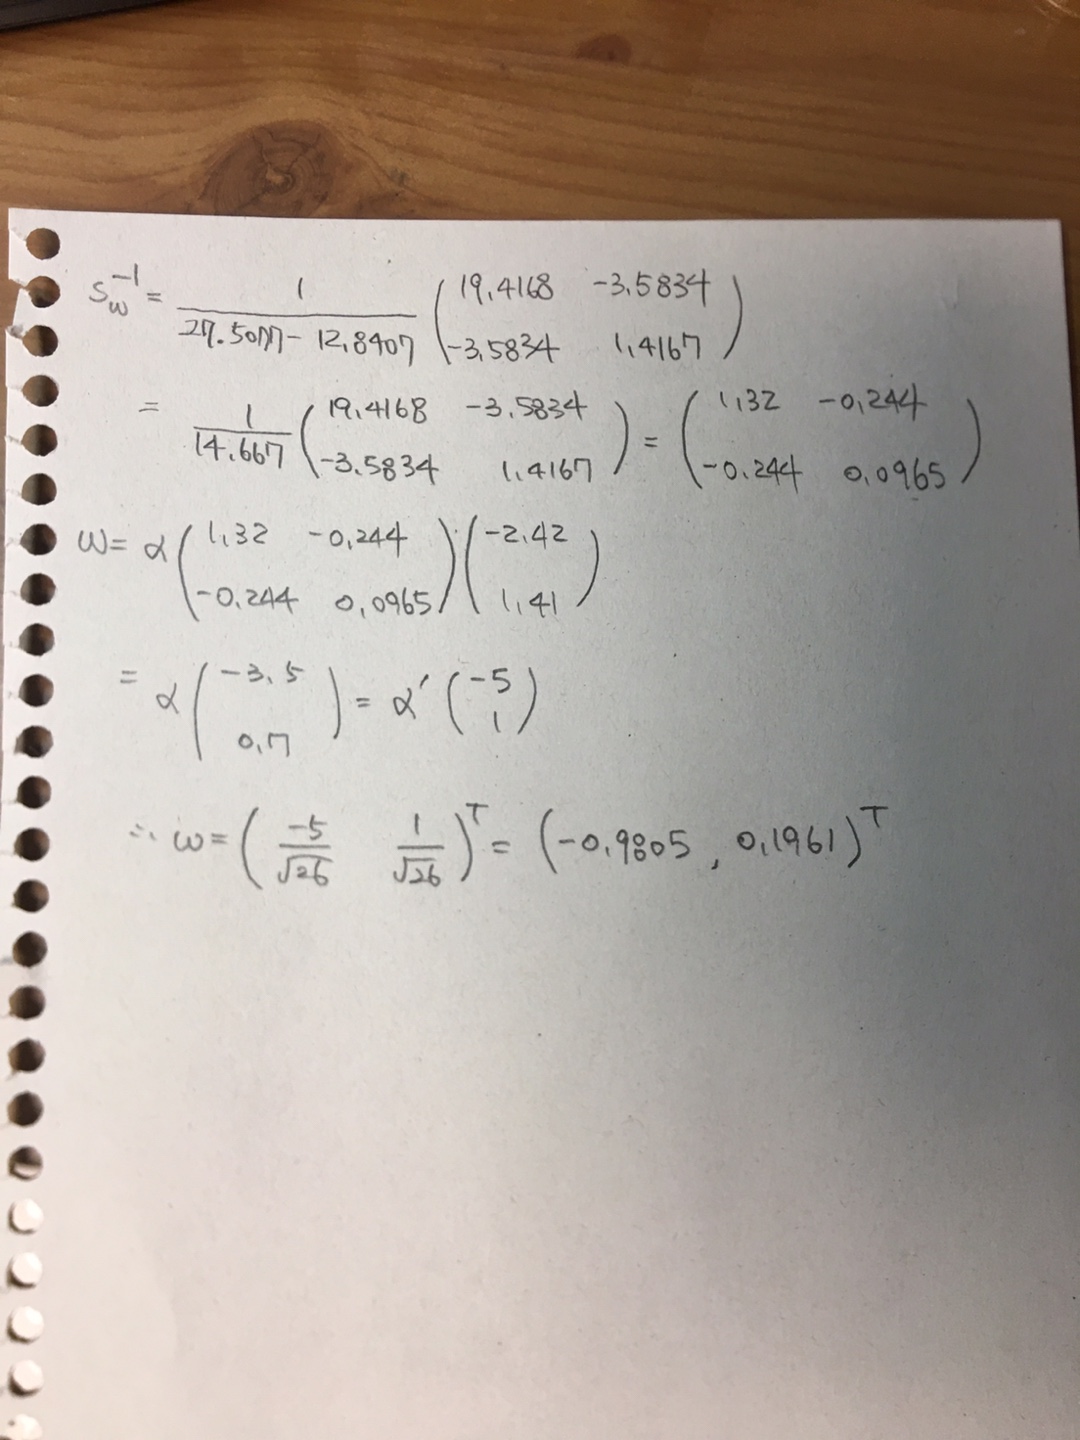 S_w^{-1} = \frac{1}{27.5077 - 12.8407} \begin{pmatrix} 19.4168 & -3.5834 \\ -3.5834 & 1.4167 \end{pmatrix}
= \frac{1}{14.667} \begin{pmatrix} 19.4168 & -3.5834 \\ -3.5834 & 1.4167 \end{pmatrix} = \begin{pmatrix} 1.32 & -0.244 \\ -0.244 & 0.0965 \end{pmatrix}
w = α \begin{pmatrix} 1.32 & -0.244 \\ -0.244 & 0.0965 \end{pmatrix} \begin{pmatrix} -2.42 \\ 1.41 \end{pmatrix}
= α \begin{pmatrix} -3.5 \\ 0.7 \end{pmatrix} = α' \begin{pmatrix} -5 \\ 1 \end{pmatrix}
∴ w = \left( \frac{-5}{\sqrt{26}} \quad \frac{1}{\sqrt{26}} \right)^T = (-0.9805, 0.1961)^T